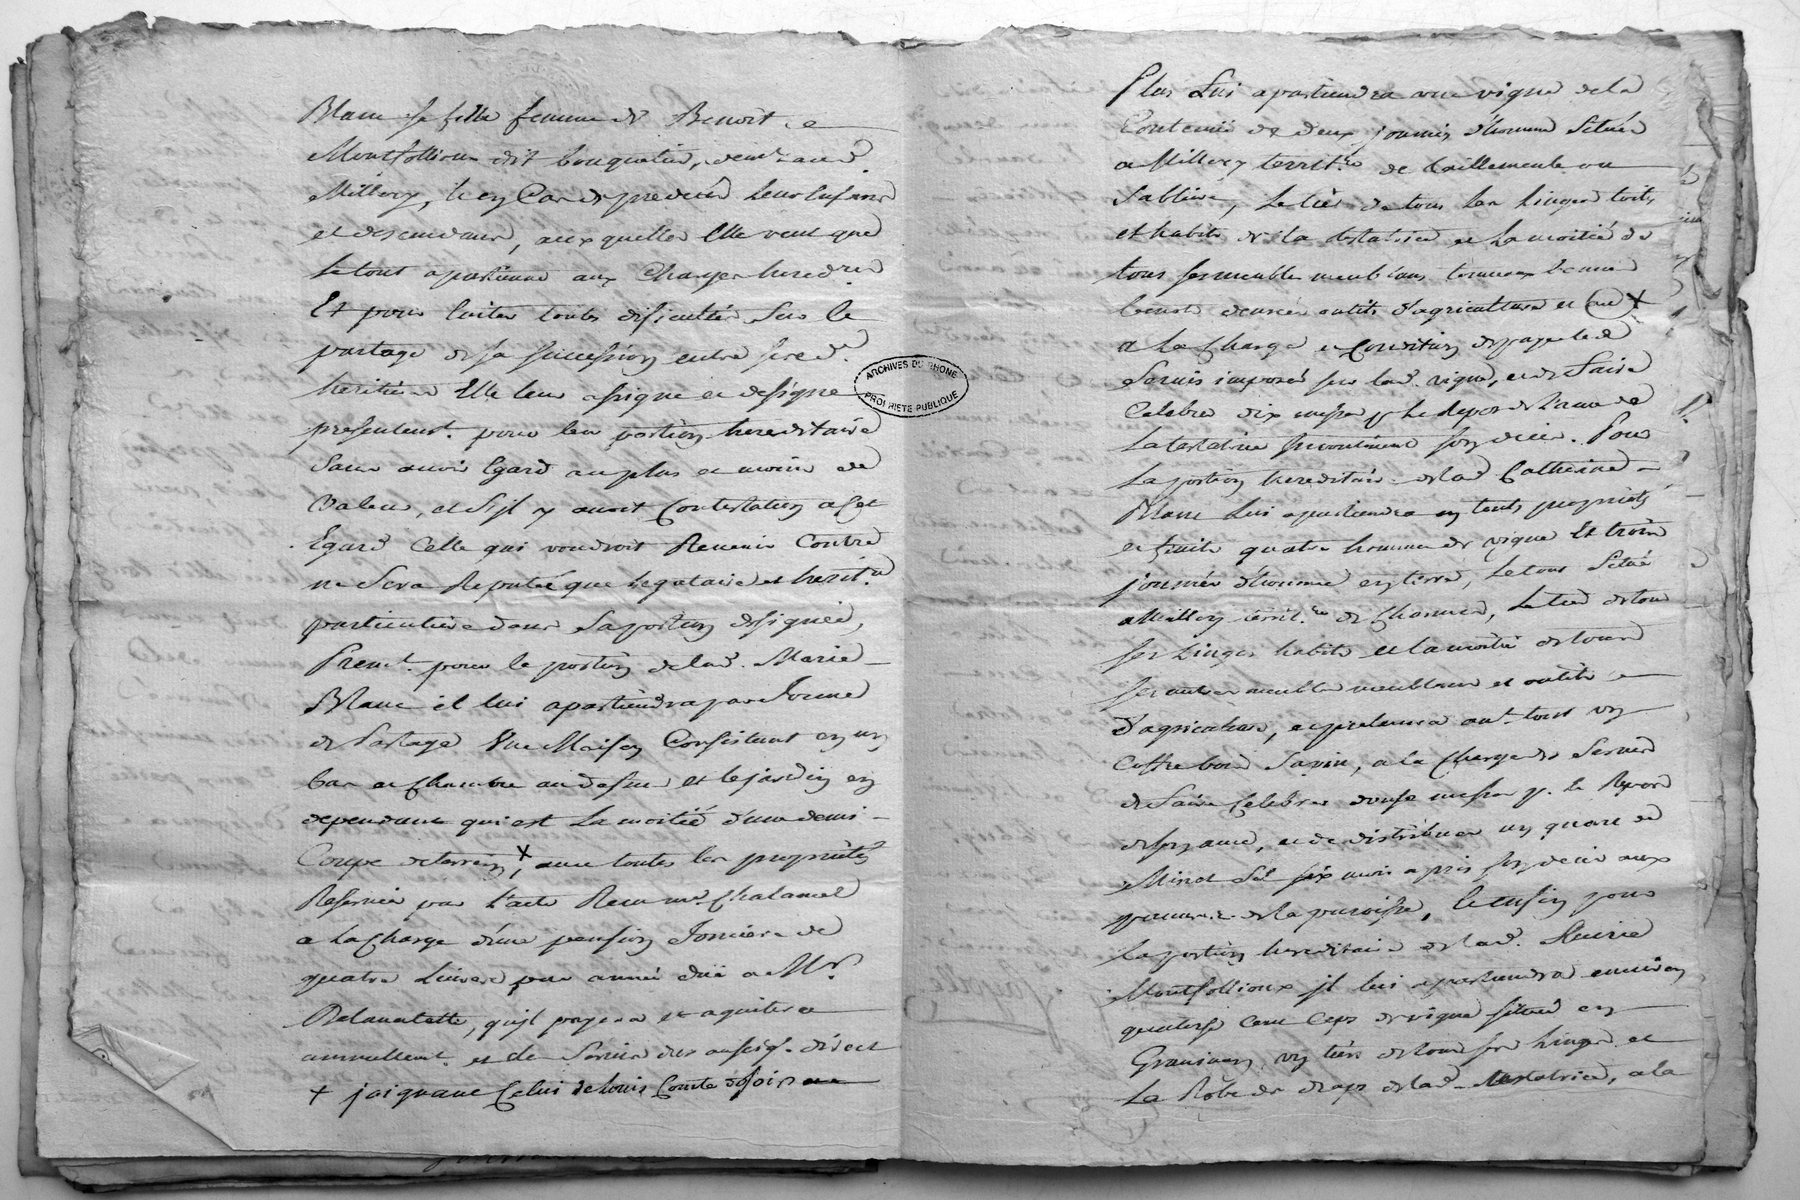 Blanc sa fille femme de Benoit
Montfollioux dit bouquetin, demt audt
Millery, & en Cas de predecès leurs Enfans
et descendans, auxquelles Elle veut que
le tout apartienne aux Charges heredres
Et pour Eviter toutes dificultés Sur le
partage de sa succession entre sesd.
heritieres Elle leur assigne et designe
presentemt. pour leur portion hereditaire
Sans avoir Egard au plus et moins de
Valeur, et S'jl y avoit Contestation a cet
Egard Celle qui voudroit Revenir Contre
ne Sera Reputée que legataire et herit.re
particuliere dans Sa portion designée,
Premt. pour la portion de lad. Marie
Blanc il lui apartiendra par forme
de Partage Une Maison Consistant en un
bas et Chambre au dessus et le jardin en
dependant qui est La moitié d'une demi
Coupe de terrein, X avec toutes les proprietés
Reservées par l'acte Recu me Chalamel
a la Charge d'une pension fonciere de
quatre Livres par année düe a Mr.
Delavalette, qu'jl payera et aquitera
annuellemt. et de Servis dus au seigr. direct
+ joignant Celui de louis Comte
ARCHIVES DU RHONE
PROPRIETE PUBLIQUE
Plus Lui apartiendra une vigne de la
Contenüe de deux journées d'homme Située
a Millery territ.re de ou
Sabliere, Le tier de tous les Linges toiles
et habits de la testatrice et La moitié de
tous ses meubles meublans tonneaux bennes
denrées outils d'agriculture et X
a La Charge et Condition de payer les
Servis imposés sur lad. vigne, et de Faire
Celebrer dix messes pr. le Repos de l'ame de
La testatrice jncontinent son decès. Pour
La portion hereditaire de lad. Catherine
Blanc Lui apartiendra en toute proprieté
et fruits quatre hommes de vigne Et trois
journées d'homme en terre, Le tout Situé
a Millery territ.re de Charmes, Le tier de tous
ses Linges habits et la moitié de tous
ses autres meubles meublans et outils
d'agriculture, et prelevera avt. tout un
Coffre bois Sapin, a la Charge de Servis
de Faire Celebrer douze messes pr. le Repos
de son ame, et de distribuer un quart de
Minot Sel six mois après son decès aux
pauvres de la paroisse, Et enfin pour
La portion hereditaire de lad. Marie
Montfollioux jl lui apartiendra environ
quatorze Cent Ceps de vigne située en
Gravinon un tiers de tous ses Linges et
La Robe de draps de lad. testatrice, a la